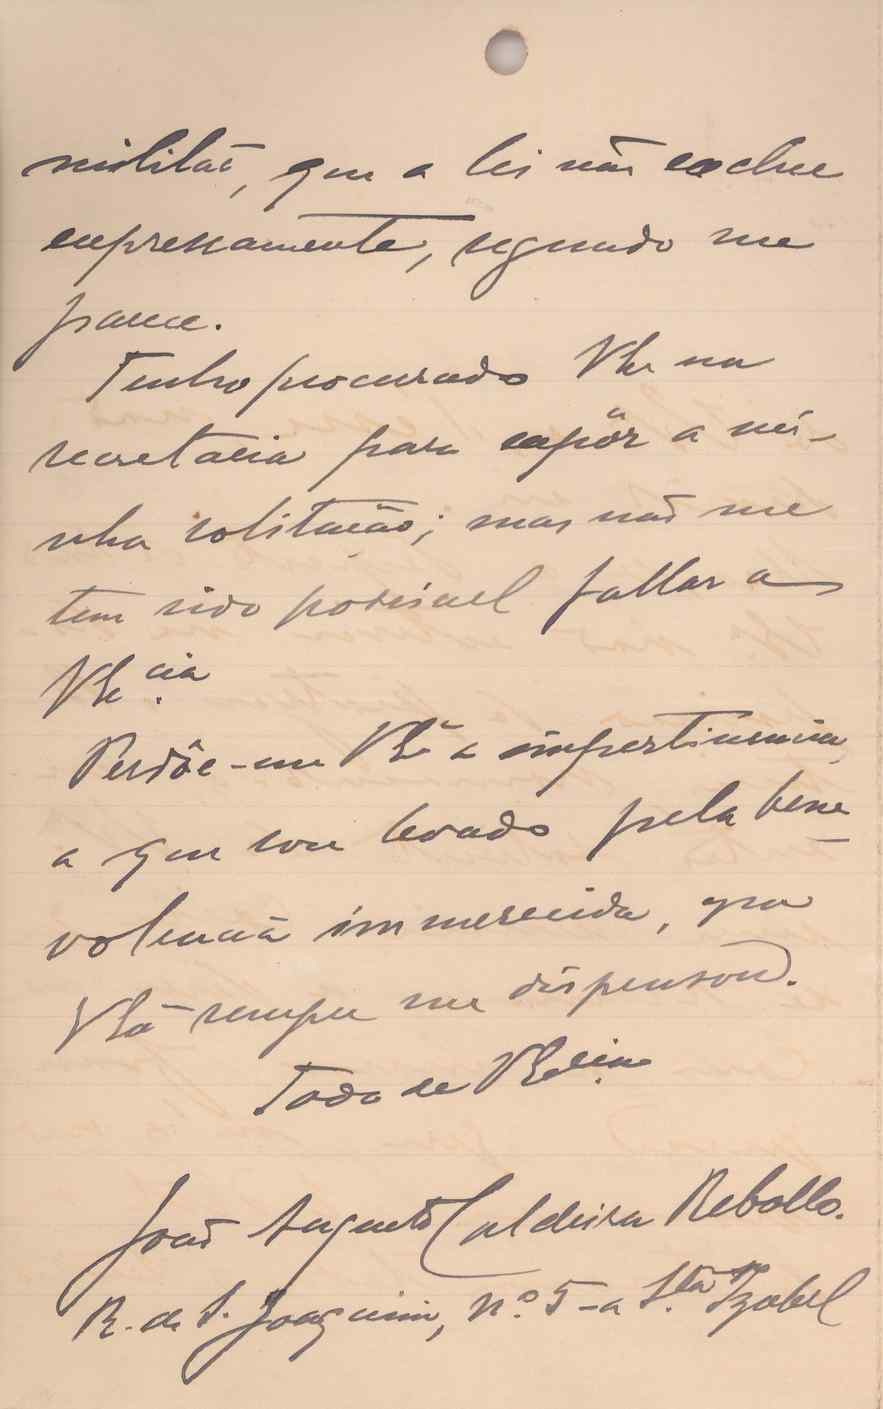 militar, que a lei não exclue
expressamente, segundo me
parece.
Tenho procurado VEx na
secretaria para expôr a mi-
nha solitação; mas não me
tem sido possivel fallar a
VEx.cia
Perdôe-me VEx.ª a impertinencia,
a que sou levado pela bene
volencia immerecida, que
VExª sempre me dispensou.
Todo de VEx.cia
João Augusto Caldeira Rebollo.
R. de S. Joaquim, nº 5-a S.ta Izabel